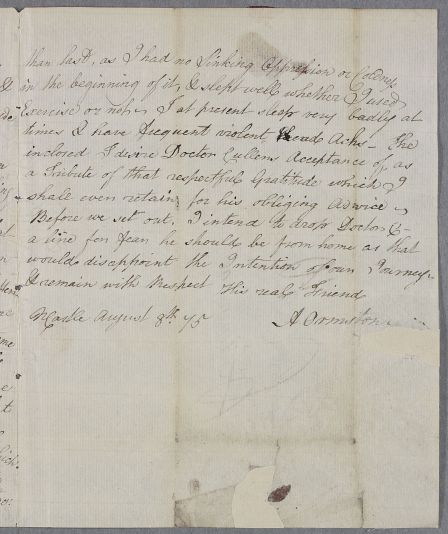 than last, as I had no Sinking Oppression or Coldness
in the beginning of it, & slept well whether I used
Exercise or not, I at present sleep very badly at
times & have frequent violent Head Achs – The
inclosed I desire Doctor Cullens Acceptance of, as
a Tribute of that respectful Gratitude which I
shall ever retain for his obliging Advice –
Before we set out, I intend to drop Doctor C–
a line for fear he should be from home as that
would disappoint the Intention of our Journey
I remain with Respect His real Friend
August 8th. 75 A Ormston